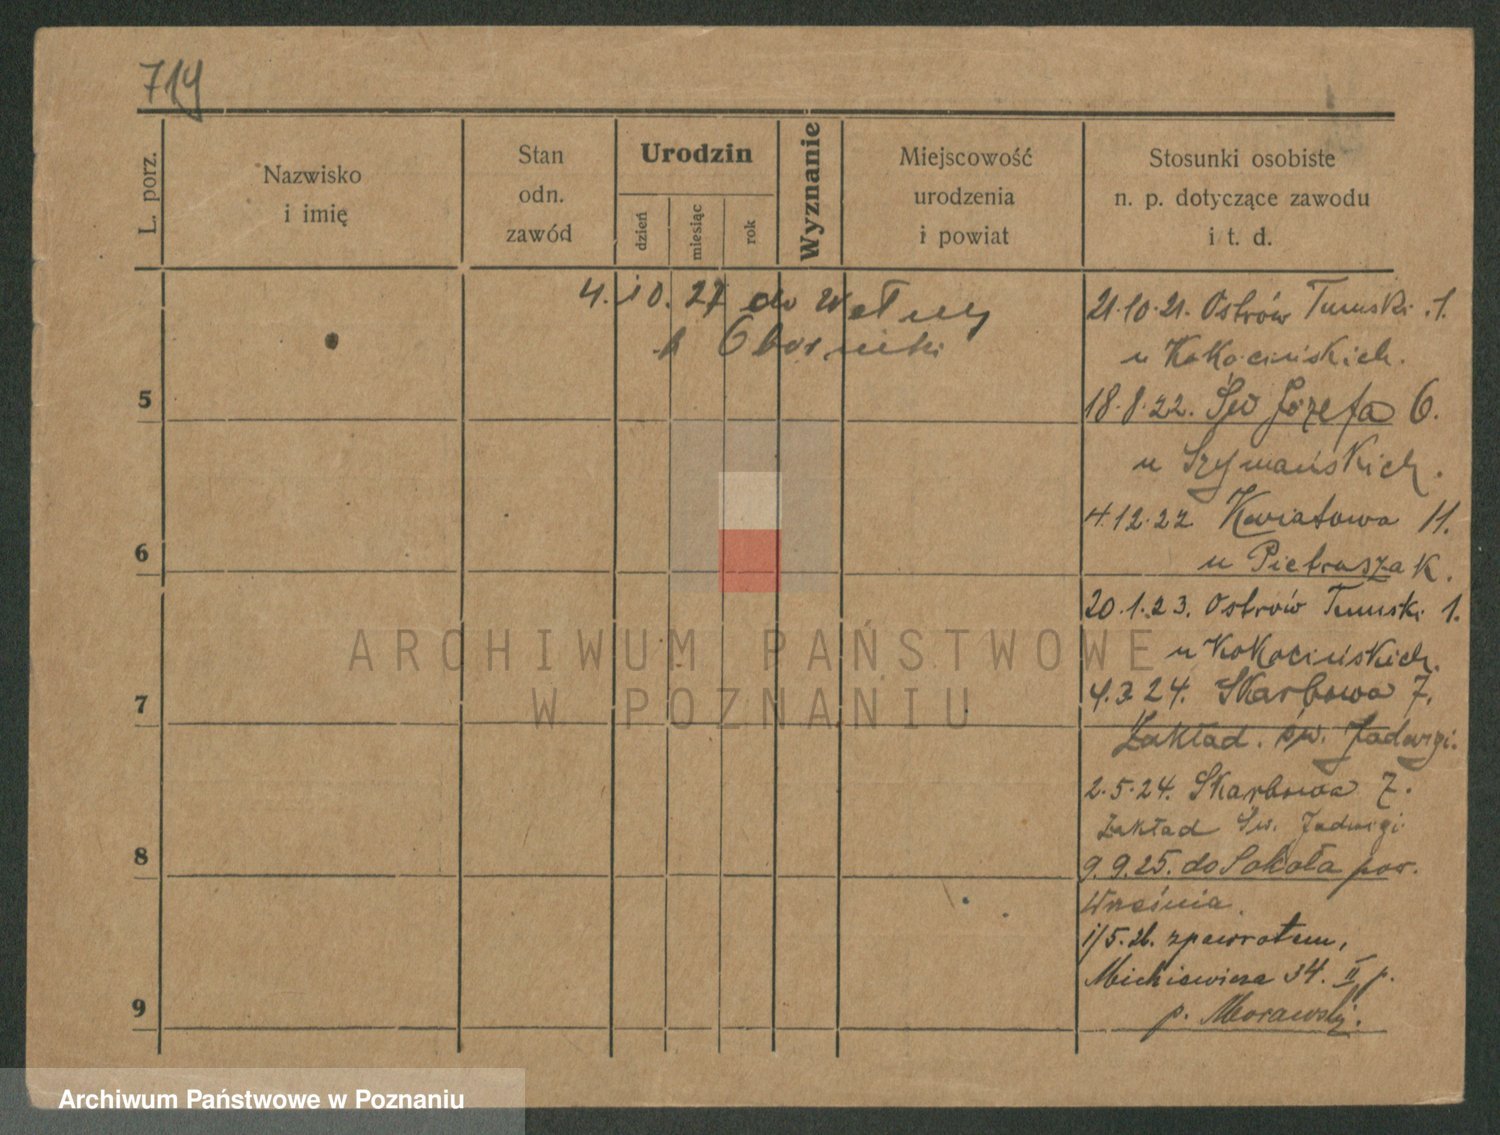 719
L. porz.
Nazwisko
i imię
Stan
odn.
zawód
Urodzin
dzień
miesiąc
rok
Wyznanie
Miejscowość
urodzenia
i powiat
Stosunki osobiste
n. p. dotyczące zawodu
i t. d.
4. 10. 27 do Wełny
p Oborniki
21.10.21. Ostrów Tumski 1.
u Kokocińskich.
18.8.22. Św Józefa 6.
u Szymańskich.
4.12.22 Kwiatowa 11.
u Pietraszak.
20.1.23. Ostrów Tumski 1.
u Kokocińskich.
4.3.24. Skarbowa 7.
Zakład. św. Jadwigi.
2.5.24. Skarbowa 7.
Zakład Św. Jadwigi
9.9.25. do Sokoła pow.
Września.
1/5.26. zpowrotem,
Mickiewicza 34. II p.
p. Morawskij.
5
6
7
8
9
ARCHIWUM PAŃSTWOWE
W POZNANIU
Archiwum Państwowe w Poznaniu